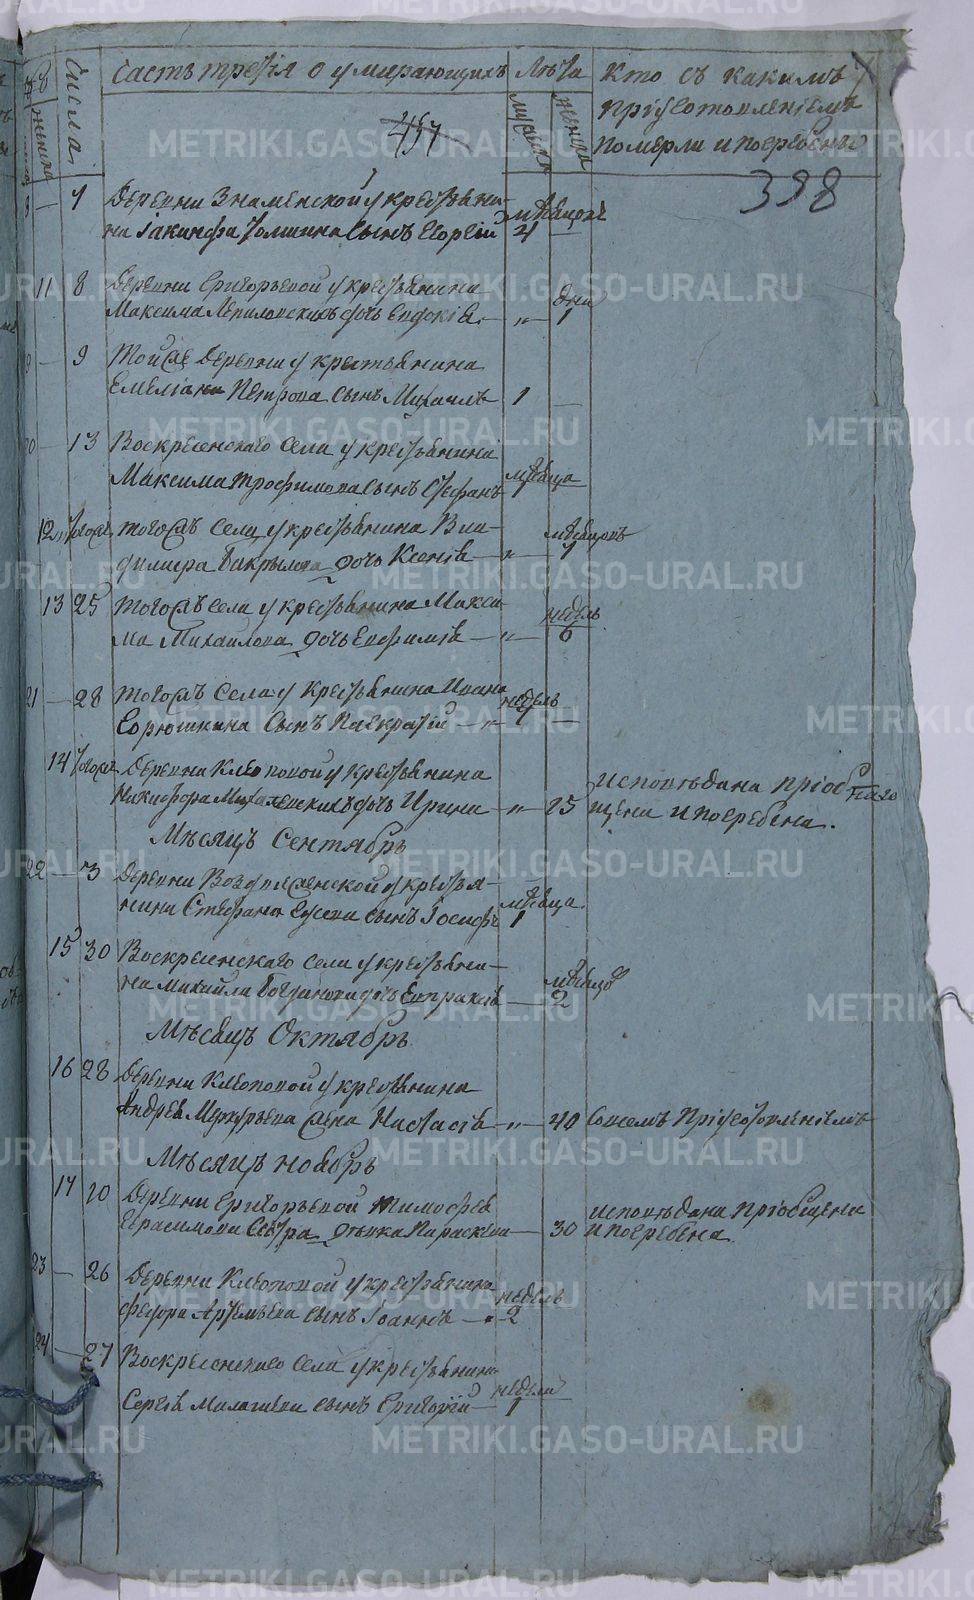 Числа
женска
Часть третiя о умирающихъ
Лѣта
мужеска
женска
Кто съ какимъ
прiуготовленiемъ
померли и погребены
457
398
7 Деревни Знаменской у крестьяни-
на Iакинфа сынъ Георгiй
мѣсяцовъ
4
11 8 Деревни Григорьевой у крестьянина
Максима дочь Евдокiя
дни
1
9 Той же деревни у крестьянина
Емелiана Петрова сынъ Михаилъ 1
20 13 Воскресенскаго села у крестьянина
Максима Трофимова сынъ Стефанъ
мѣсяца
1
12 того ж тогожъ села у крестьянина Вла-
димира дочь Ксенiя
мѣсяцовъ
7
13 25 тогожъ села у крестьянина Макси-
ма Михайлова дочь Евфимiя
недѣль
6
21 28 тогожъ села у крестьянина Ивана
Горюшкина сынъ Панкратiй
недѣль
14 того ж Деревни Клеопиной у крестьянина
Никифора дочь Ирина 25
исповѣдана прiоб
щена и погребена.
Мѣсяцъ Сентябрь
22 3 Деревни Воздвиженской у крестья-
нина Стефана сынъ Iосифъ
мѣсяца
1
15 30 Воскресенскаго села у крестьяни-
на Михайла Богданова дочь Евпраксiя
мѣсяцовъ
2
Мѣсяцъ Октябрь
16 28 Деревни Клеопиной у крестьянина
Андрея Меркурьева жена Настасiя 40 Совсемъ прiуготовленiемъ
Мѣсяцъ ноябрь
17 20 Деревни Григорьевой Тимофея
Герасимова сестра дѣвка Параскева 30
исповѣдана прiобщена
и погребена
23 26 Деревни Клеопиной у крестьянина
Федора Артемьева сынъ Iоаннъ
недѣль
2
24 27 Воскресенскаго села у крестьянина
Сергiя сынъ Григорiй
недѣли
1
METRIKI.GASO-URAL.RU